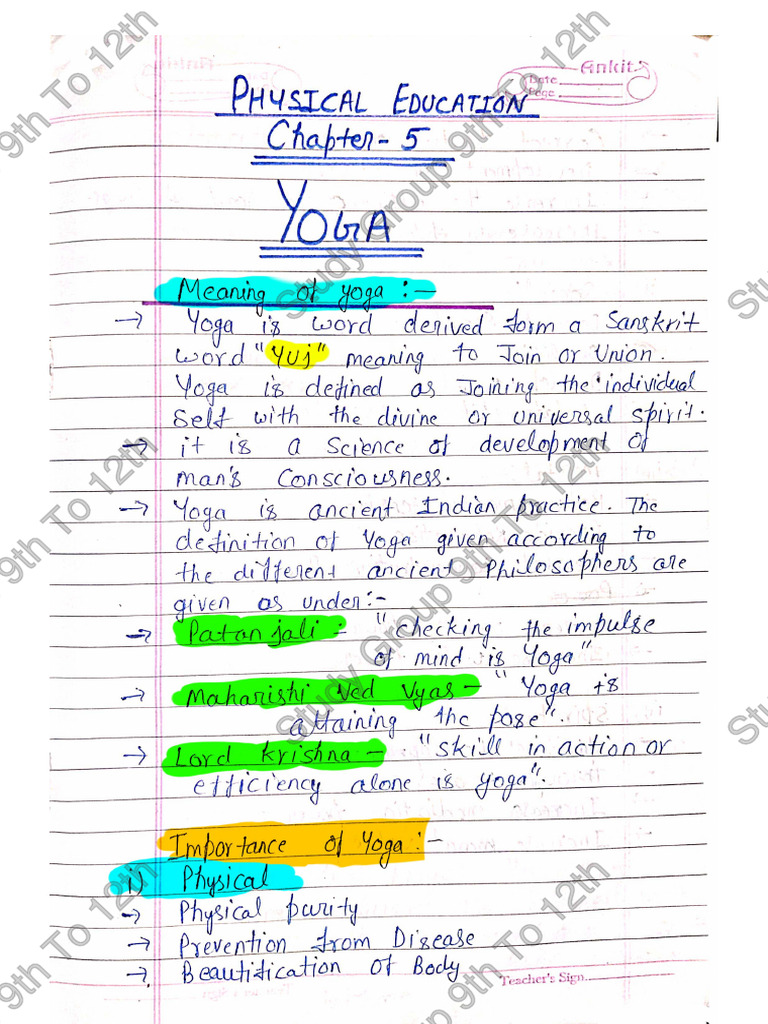 Ankit
Date
Page
PHYSICAL EDUCATION
Chapter - 5
YOGA
Meaning of yoga :-
→ Yoga is word derived form a Sanskrit
word "YUJ" meaning to Join or Union.
Yoga is defined as Joining the individual
Self with the divine or universal spirit.
→ it is a Science of development of
man's Consciousness.
→ Yoga is ancient Indian practice. The
definition of Yoga given according to
the different ancient Philosophers are
given as under:-
→ Patanjali :- "checking the impulse
of mind is Yoga"
→ Maharishi Ved Vyas - "Yoga is
attaining the pose".
→ Lord krishna - "skill in action or
efficiency alone is yoga".
Importance of Yoga :-
i) Physical
→ Physical purity
→ Prevention from Disease
→ Beautification of Body
Teacher's Sign.
Study Group 9th To 12th
Study Group 9th To 12th
9th To 12th
9th To 12th
9th To 12th